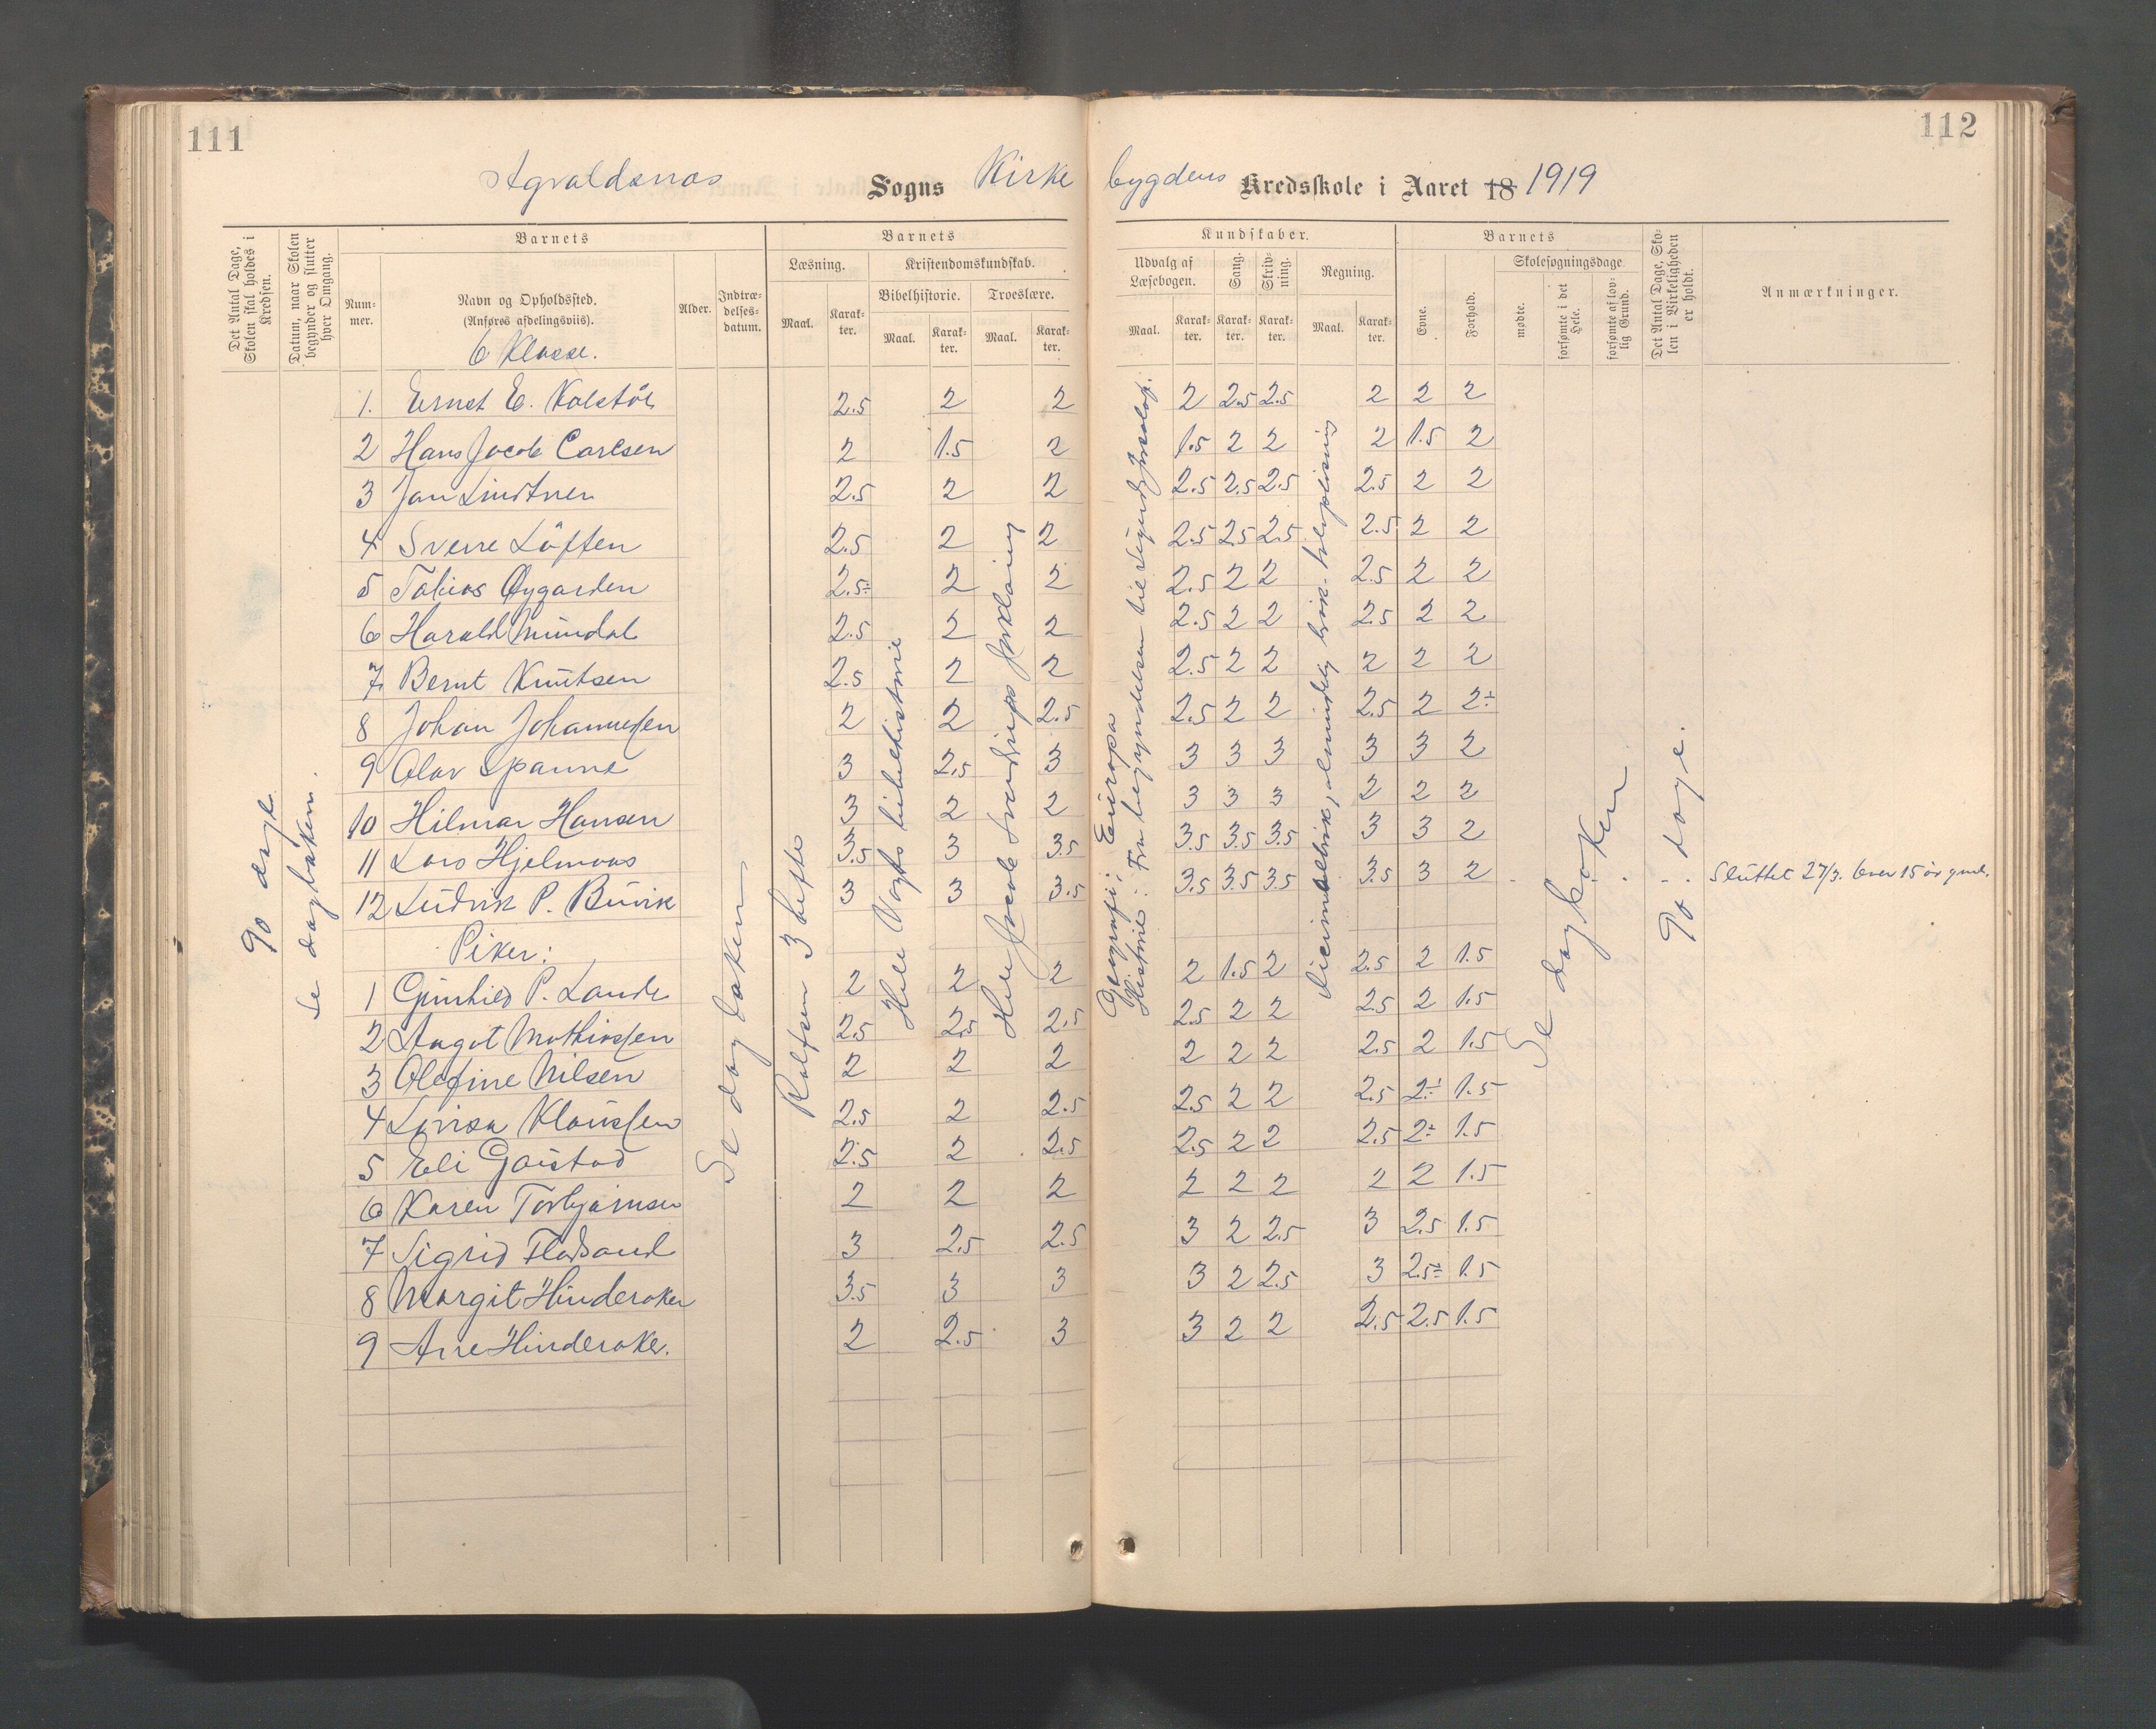 111
112
Agvaldsnes Sogns Kirke bygdens Kredsskole i Aaret 18 1919
Det Antal Dage, Skolen skal holdes i Kredsen.
Datum, naar Skolen begynder og slutter hver Omgang.
Barnets
Nummer.
Navn og Opholdssted.
(Anføres afdelingsviis).
6 Klasse.
Alder.
Indtrædelsesdatum.
Barnets
Læsning.
Kristendomskundskab.
Bibelhistorie.
Troeslære.
Maal. Karakter. Maal. Karakter. Maal. Karakter.
Kundskaber.
Udvalg af Læsebogen.
Sang.
Skrivning.
Regning.
Maal. Karakter. Karakter. Karakter. Maal. Karakter.
Barnets
Evne.
Forhold.
Skolesøgningsdage
mødte.
forsømte i det Hele.
forsømte af lovlig Grund.
Det Antal Dage, Skolen i Virkeligheden er holdt.
Anmærkninger.
90 dage
Se dagboken.
Se dagboken
Rolfsen 3 hefte
Hele Vogts bibelhistorie
Hele Jacob Sverdrups forklaring
Geografi: Europa
Historie: Fra begyndelsen til Sigurd Jorsalaf.
Decimalbrøk, almindelig brøk
Se dagboken
90 dage.
1. Ernst E. Kolstöe 2.5 2 2 2 2.5 2.5 2 2 2
2 Hans Jacob Carlsen 2 1.5 2 1.5 2 2 2 1.5 2
3 Jan Lindtner 2.5 2 2 2.5 2.5 2.5 2.5 2 2
4 Sverre Löften 2.5 2 2 2.5 2.5 2.5 2.5 2 2
5 Tobias Øygarden 2.5÷ 2 2 2.5 2 2 2.5 2 2
6 Harald Mundal 2.5 2 2 2.5 2 2 2.5 2 2
7 Bernt Knutsen 2.5 2 2 2.5 2 2 2 2 2
8 Johan Johannessen 2 2 2.5 2.5 2 2 2.5 2 2÷
9 Olav Spanne 3 2.5 3 3 3 3 3 3 2
10 Hilmar Hansen 3 2 2 3 3 3 2 2 2
11 Lars Hjelmaas 3.5 3 3.5 3.5 3.5 3.5 3 3 2
12 Ludvik P. Buvik 3 3 3.5 3.5 3.5 3.5 3.5 3 2 Sluttet 27/3. Over 15 år gml.
Piker:
1 Gunhild P. Lande 2 2 2 2 1.5 2 2.5 2 1.5
2 Aagot Mathiassen 2.5 2.5 2.5 2.5 2 2 2.5 2 1.5
3 Olefine Nilsen 2 2 2 2 2 2 2.5 2 1.5
4 Lovisa Klaussen 2.5 2 2.5 2.5 2 2 2.5 2÷ 1.5
5 Eli Gaustad 2.5 2 2.5 2.5 2 2 2.5 2÷ 1.5
6 Karen Torbjørnsen 2 2 2 2 2 2 2 2 1.5
7 Sigrid Fladsand 3 2.5 2.5 3 2 2.5 3 2.5 1.5
8 Margit Hinderaker 3.5 3 3 3 2 2.5 3 2.5÷ 1.5
9 Ane Hinderaker. 2 2.5 3 3 2 2 2.5 2.5 1.5